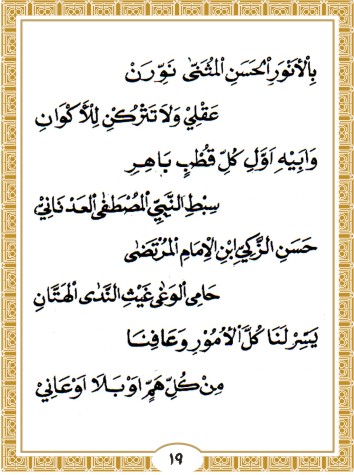 بِالْاَنْوَرِ الْحَسَنِ الْمُثَنّٰى نَوِّرَنْ
عَقْلِيْ وَلَا تَتْرُكْنِ لِلْأَكْوَانِ
وَاَبِيْهِ اَوَّلِ كُلِّ قُطْبٍ بَاهِرٍ
سِبْطِ النَّبِيِّ الْمُصْطَفٰى الْعَدْنَانِيْ
حَسَنِ الزَّكِيِّ ابْنِ الْاِمَامِ الْمُرْتَضٰى
حَامِى الْوَغٰى غَيْثِ النَّدٰى الْهَتَّانِ
يَسِّرْ لَنَا كُلَّ الْاُمُوْرِ وَعَافِنَا
مِنْ كُلِّ هَمٍّ اَوْ بَلَا اَوْ عَانِيْ
١٩